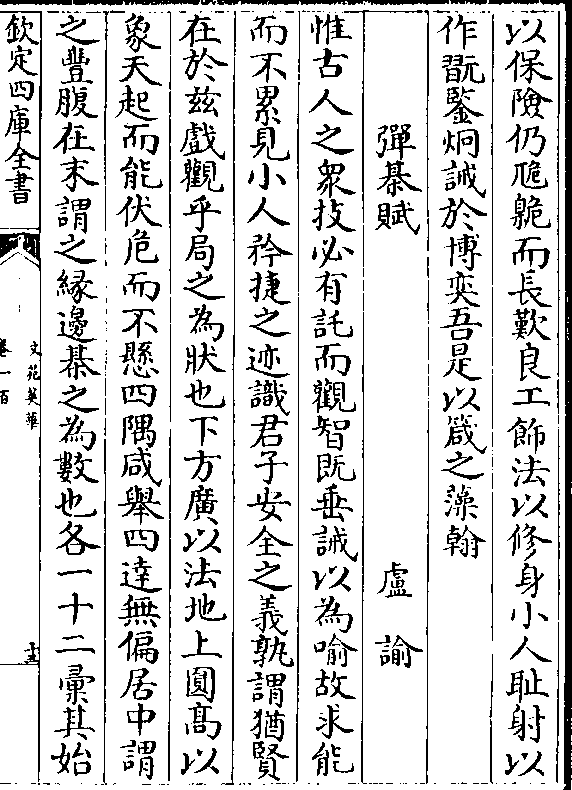 以保險仍卼臲而長歎良工飾法以修身小人耻射以
作翫鑒炯誡於博奕吾是以箴之藻翰
彈棊賦 盧諭
惟古人之衆技必有託而觀智既垂誡以為喻故求能
而不累見小人矜捷之迹識君子安全之義孰謂猶賢
在於兹戲觀乎局之為狀也下方廣以法地上圓高以
象天起而能伏危而不懸四隅咸舉四達無偏居中謂
之豐腹在末謂之緣邊棊之為數也各一十二彚其始
欽定四庫全書
文苑英華
卷一百
十三